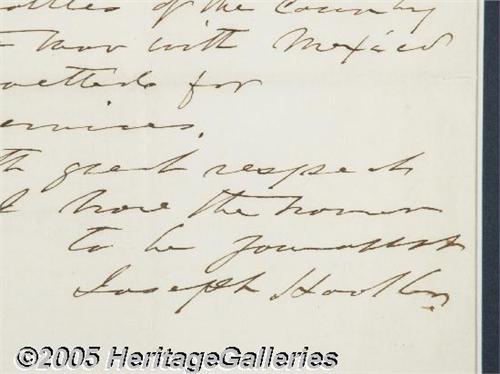 battles of the Country
war with Mexico
for
services.
great respect
I have the honor
to be
Joseph Hooker
©2005 HeritageGalleries